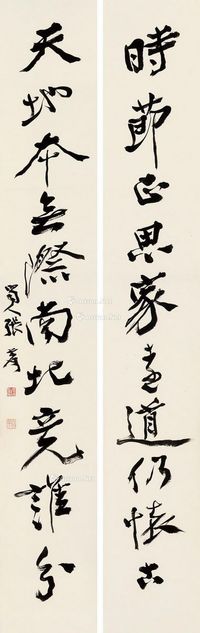 時節正思家遠道仍懷古
天地本無際南北竟誰分
蜀人張善